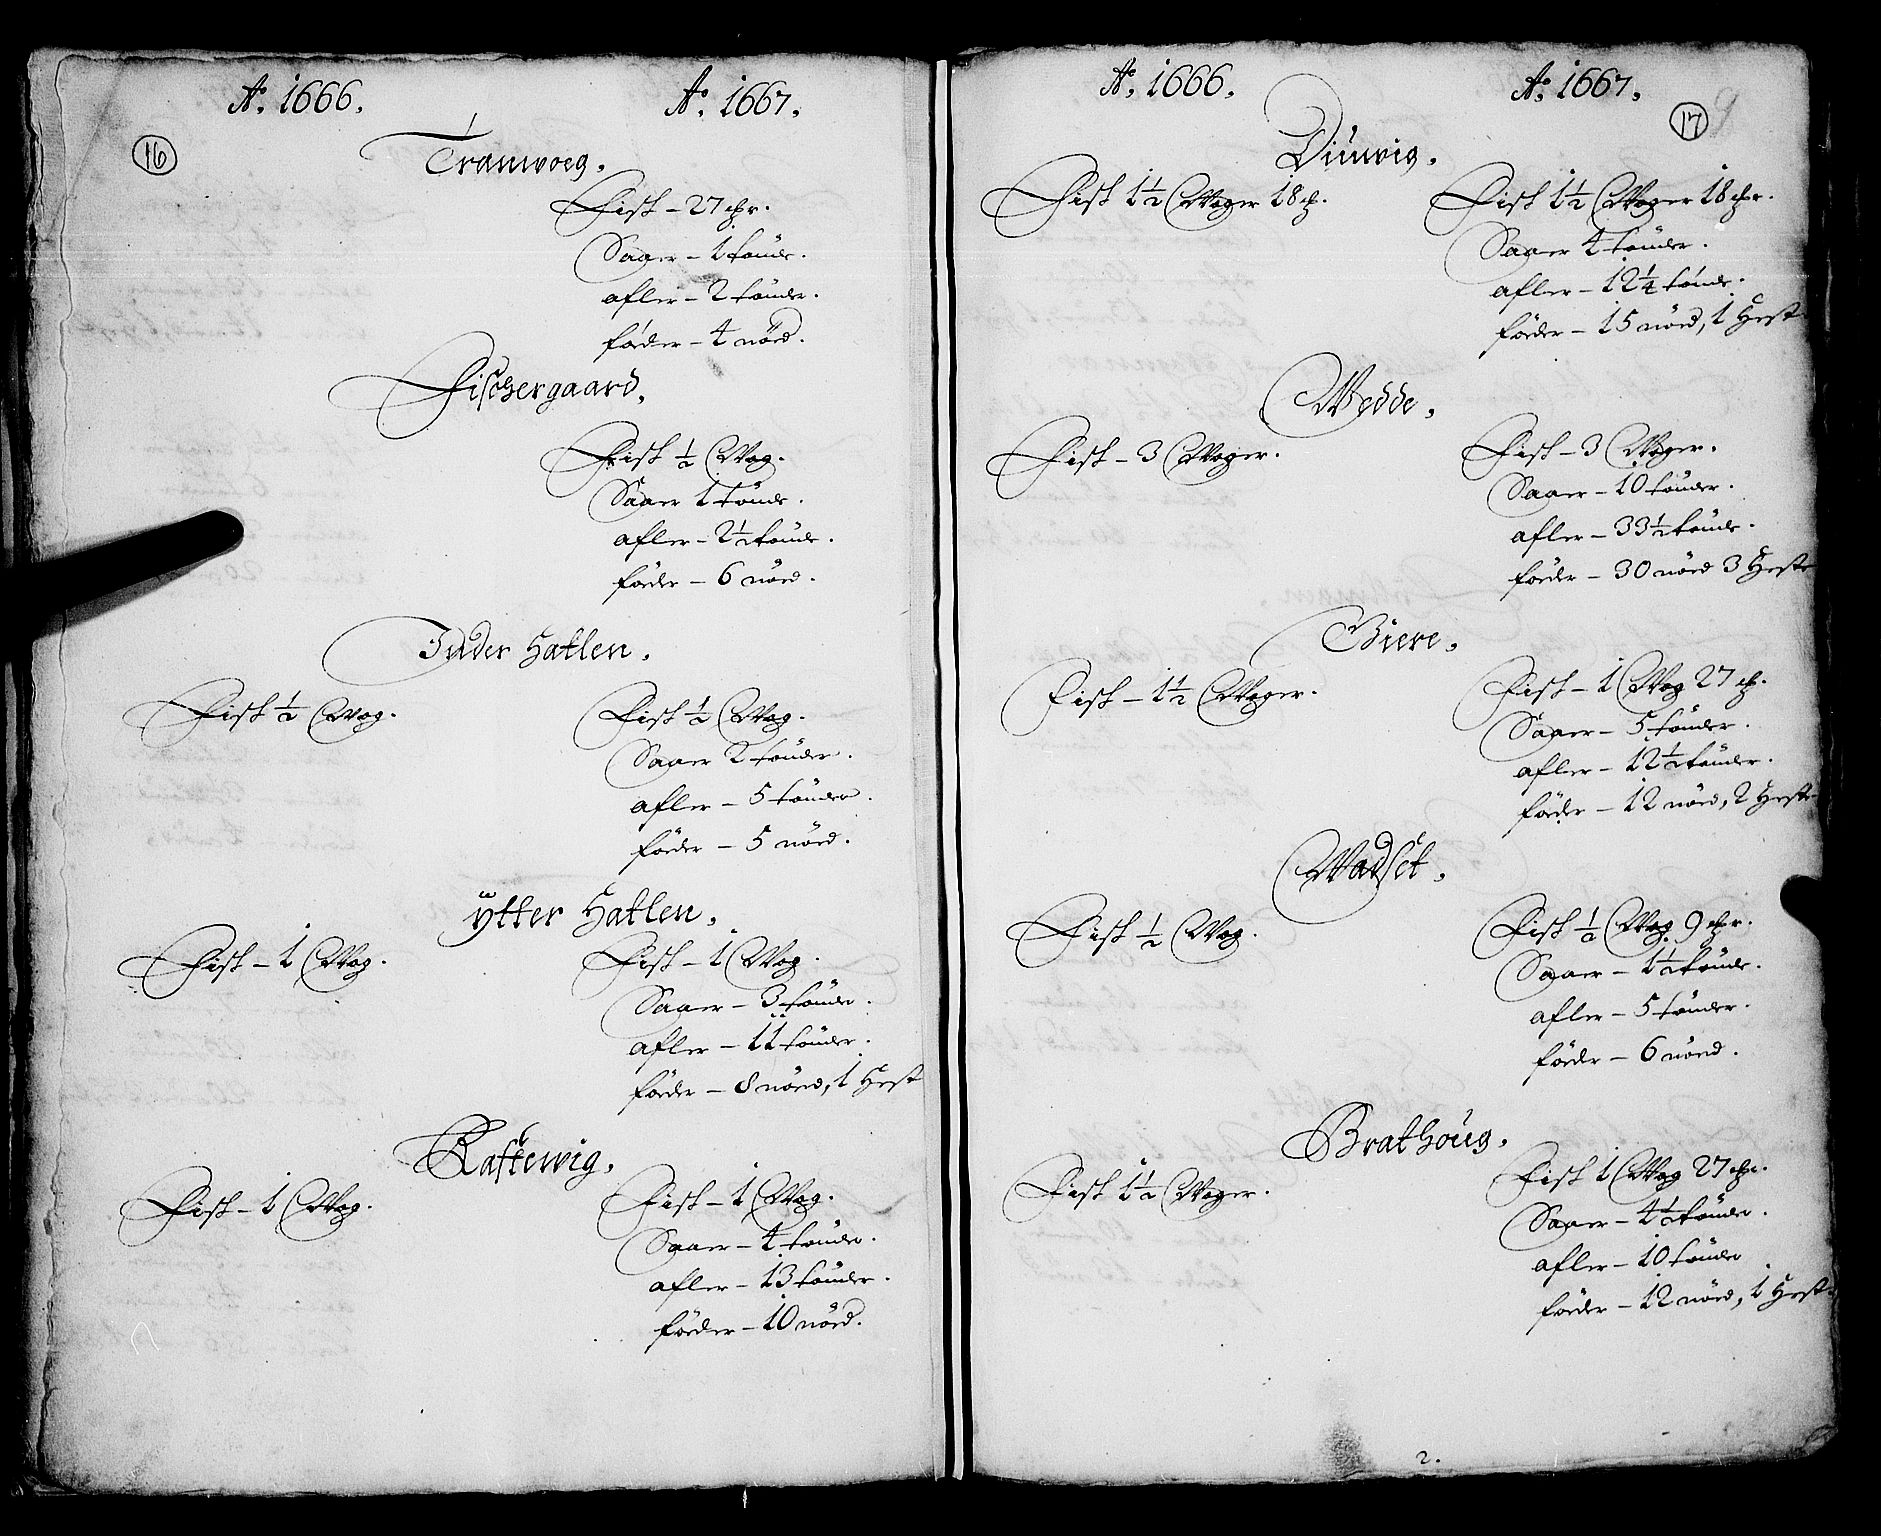 Ao. 1666. Ao. 1667.
16
Tranwoeg.
Fisk - 27 ℔r.
Saaer - 1 tønde.
afler - 2 tønder.
føder - 4 nød.
Fischergaard.
Fisk ½ Wog.
Saaer 1 tønde.
afler - 2½ tønde.
føder - 6 nød.
Inder Hatlen.
Fisk ½ Wog. Fisk ½ Wog.
Saaer 2 tønder.
afler - 5 tønder.
føder - 5 nød.
Ytter Hatlen.
Fisk - 1 Wog. Fisk - 1 Wog.
Saaer - 3 tønder.
afler - 11 tønder.
føder - 8 nød, 1 Hest
Rafkewig.
Fisk - 1 Wog. Fisk - 1 Wog.
Saaer - 4 tønder.
afler - 13 tønder.
føder - 10 nød.
Ao. 1666. Ao. 1667.
17 9
Diuwig.
Fisk 1½ Woger 18 ℔. Fisk 1½ Woger 18 ℔r.
Saaer 4 tønder.
afler - 12¼ tønde.
føder - 15 nød, 1 Hest
Wedde.
Fisk - 3 Woger. Fisk - 3 Woger.
Saaer - 10 tønder.
afler - 33½ tønde.
føder - 30 nød 3 Heste
Giere.
Fisk - 1½ Woger. Fisk - 1 Wog 27 ℔.
Saaer - 5 tønder.
afler - 12½ tønder.
føder - 12 nød, 2 Heste
Wadset.
Fisk ½ Wog. Fisk ½ Wog 9 ℔r.
Saaer - 1½ tønde.
afler - 5 tønder.
føder - 6 nød.
Brathoug.
Fisk 1½ Woger. Fisk 1 Wog 27 ℔r.
Saaer - 4½ tønder.
afler - 10 tønder
føder - 12 nød, 1 Hest.
2.